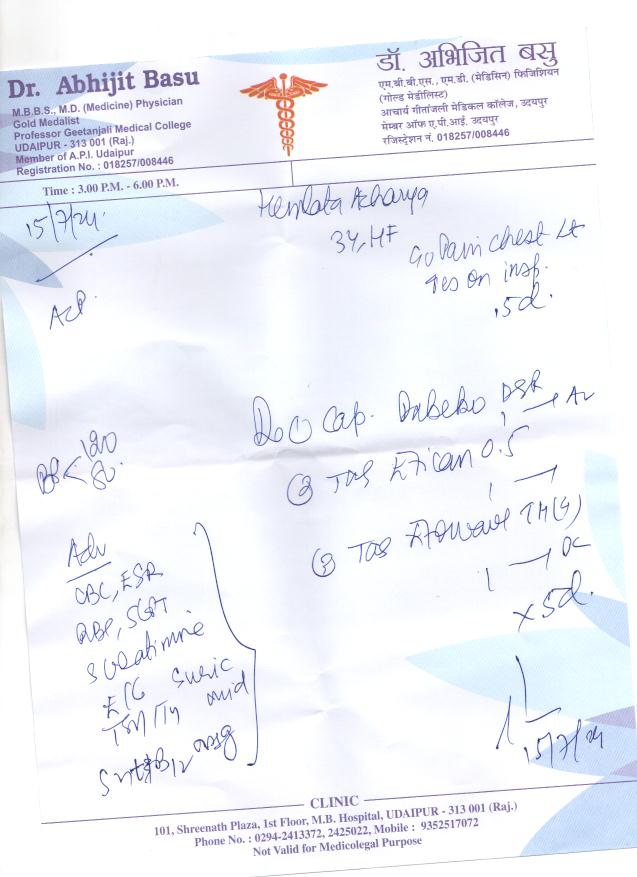 Dr. Abhijit Basu
M.B.B.S., M.D. (Medicine) Physician
Gold Medalist
Professor Geetanjali Medical College
UDAIPUR - 313 001 (Raj.)
Member of A.P.I. Udaipur
Registration No. : 018257/008446
Time : 3.00 P.M. - 6.00 P.M.
डॉ. अभिजित बसु
एम.बी.बी.एस., एम.डी. (मेडिसिन) फिजिशियन
(गोल्ड मेडीलिस्ट)
आचार्य गीतांजली मेडिकल कॉलेज, उदयपुर
मेम्बर ऑफ ए.पी.आई. उदयपुर
रजिस्ट्रेशन नं. 018257/008446
15/7/24
Hemlata Acharya
34
Pain chest Lt
on insp.
5d.
BP < 120
80
① Cap. DSR
② Tab 0.5
③ Tab TH (4)
x 5d.
Adv
CBC, ESR
RBS, SGPT
S Creatinine
ECG S uric acid
TSH
B12
15/7/24
CLINIC
101, Shreenath Plaza, 1st Floor, M.B. Hospital, UDAIPUR - 313 001 (Raj.)
Phone No. : 0294-2413372, 2425022, Mobile : 9352517072
Not Valid for Medicolegal Purpose